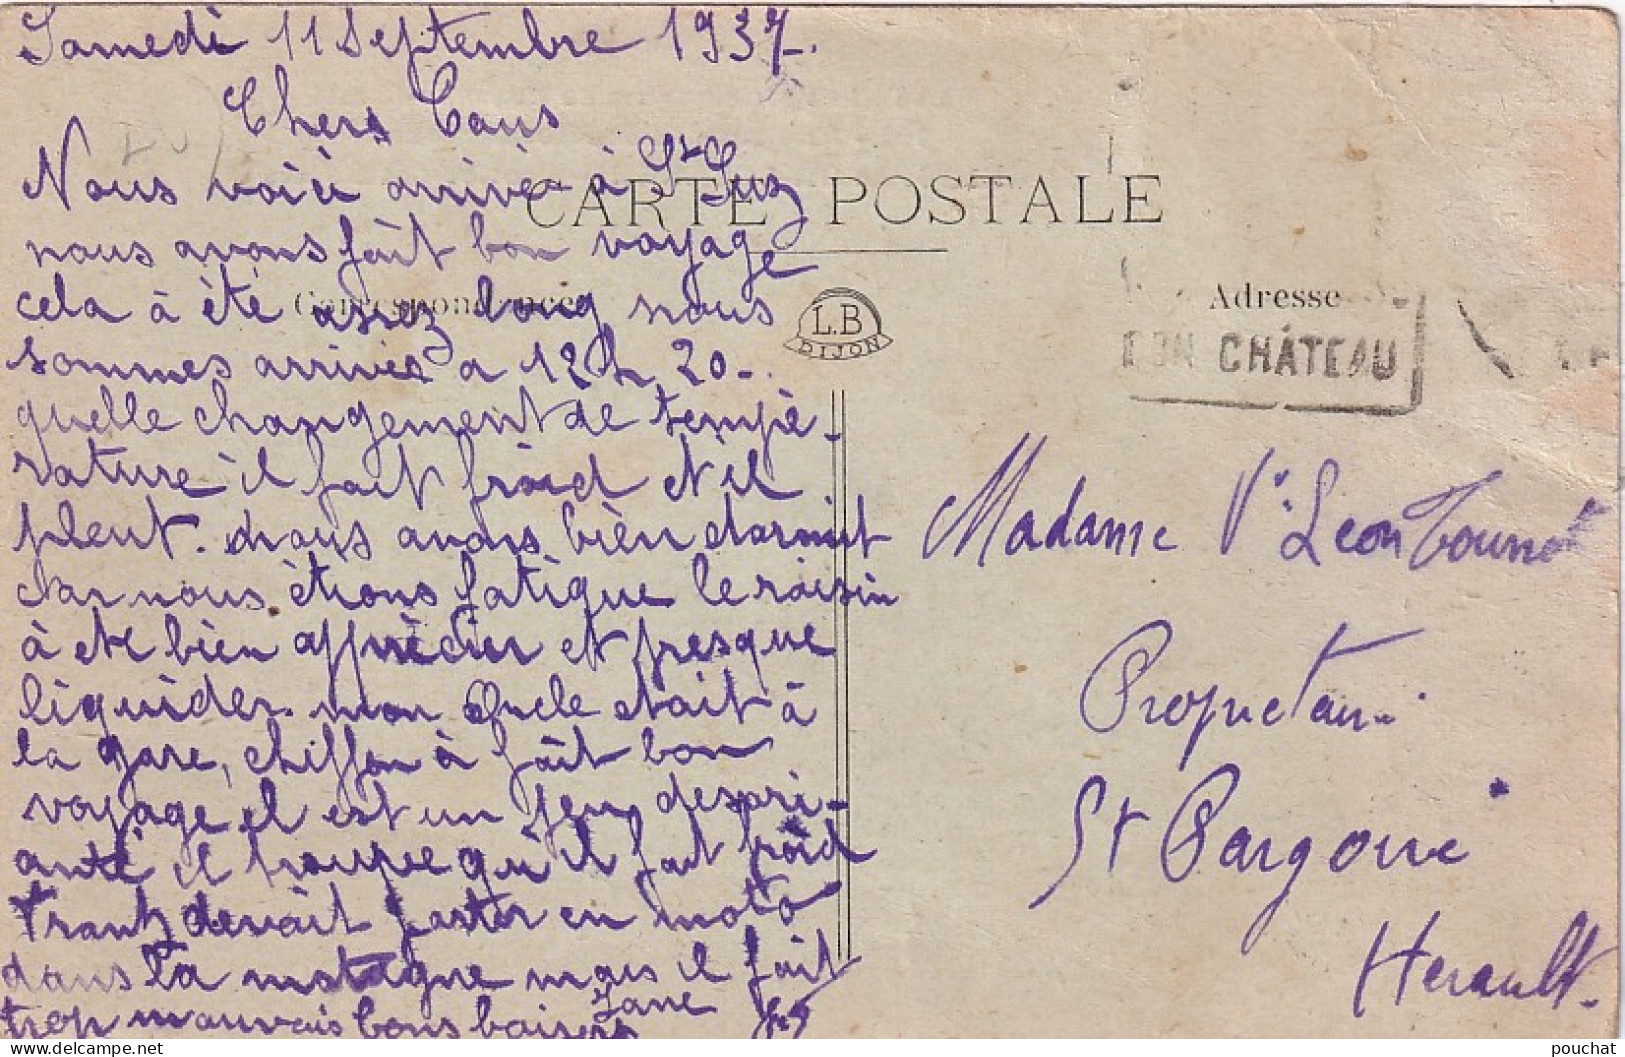 Samedi 11 Septembre 1937.
Chers Tous
Nous voici arrivé à St Luz
nous avons fait bon voyage
cela à été assez long nous
sommes arrivés a 12 h 20.
quelle changement de tempé-
rature il fait froid et il
pleut. nous avons bien dormit
car nous étions fatigue le raisin
à été bien apprécier et presque
liquider. mon Oncle etait à
la gare, chiffon à fait bon
voyage il est un peu desori-
anté il trouve qu'il fait froid
Frantz devait partir en moto
dans la montagne mais il fait
trop mauvais bons baisers
CARTE POSTALE
Correspondance
L.B
DIJON
Adresse
CHÂTEAU
Madame Ve Leon
Propriétaire
St Pargoire
Herault.
pouchat